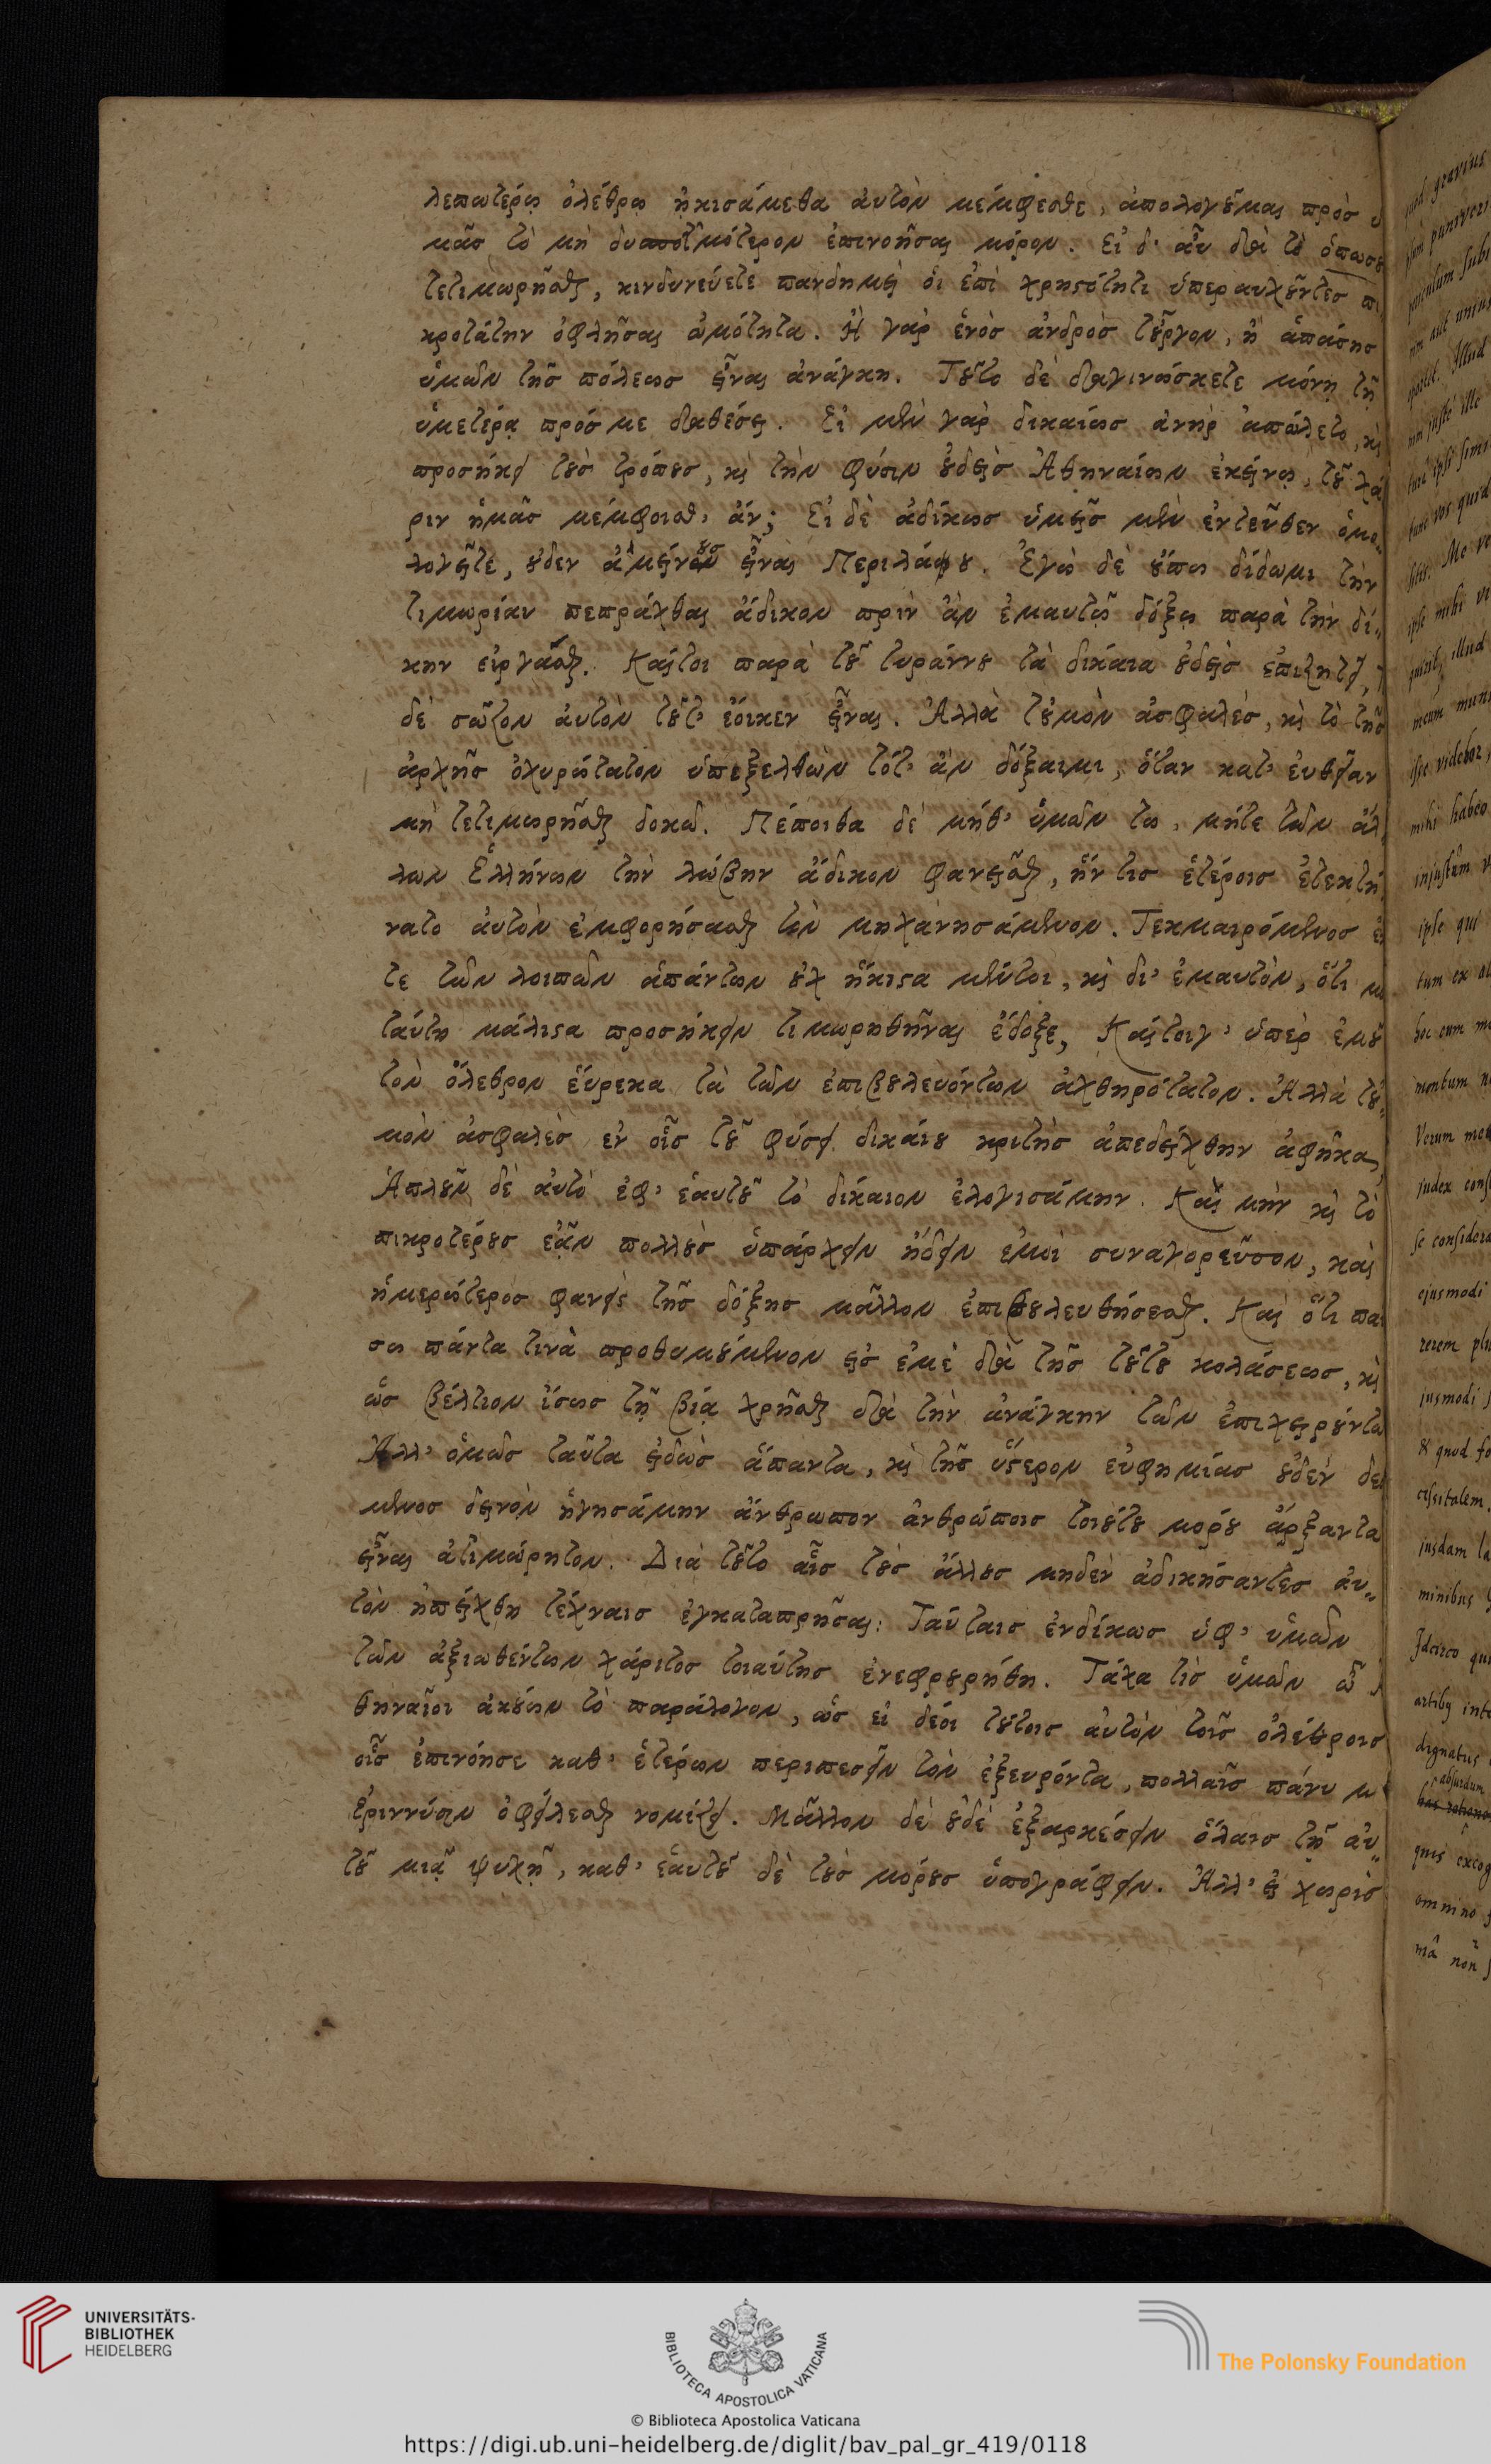 λεπωτέρῳ ὀλέθρῳ ᾐκισάμεθα αὐτὸν μέμφεσθε, ἀπολογοῦμαι πρὸσ ὑ
μᾶσ τὸ μὴ ἐπινοῆσαι μόρον. Εἰ δ' αὖ διὰ τὸ ὁπωσοῦ
τετιμωρῆσθαι, κινδυνεύετε πανδημεὶ οἱ ἐπὶ χρηστότητι ὑπεραυχοῦντεσ πι
κροτάτην ὀφλῆσαι ὠμότητα. Ἢ γὰρ ἑνὸσ ἀνδρὸσ τοὖργον, ἢ ἁπάσησ
ὑμῶν τῆσ πόλεωσ εἶναι ἀνάγκη. Τοῦτο δὲ διαγινώσκετε μόνῃ τῇ
ὑμετέρᾳ πρόσ με διαθέσει. Εἰ μὲν γὰρ δικαίωσ ἀνὴρ ἀπώλετο, καὶ
προσήκει τοὺσ τρόπουσ, καὶ τὴν φύσιν οὐδεὶσ Ἀθηναίων ἐκείνῳ, τοῦ χά
ριν ἡμᾶσ μέμφοισθ' ἄν; Εἰ δὲ ἀδίκωσ ὑμεῖσ μὲν ἐντεῦθεν ὁμο
λογεῖτε, οὐδὲν εἶναι Περιλάου. Ἐγὼ δὲ οὔπω δίδωμι τὴν
τιμωρίαν πεπράχθαι ἄδικον πρὶν ἂν ἐμαυτῷ δόξω παρὰ τὴν δί
κην εἰργάσθαι. Καίτοι παρὰ τοῦ τυράννου τὰ δίκαια οὐδεὶσ ἐπιζητεῖ,
δὲ σῶζον αὐτὸν τοῦτ' ἔοικεν εἶναι. Ἀλλὰ τοὐμὸν ἀσφαλὲσ, καὶ τὸ τῆσ
ἀρχῆσ ὀχυρώτατον ὑπεξελθὼν τότ' ἂν δόξαιμι, ὅταν κατ' εὐθεῖαν
μὴ τετιμωρῆσθαι δοκῶ. Πέποιθα δὲ μήθ' ὑμῶν τω, μήτε τῶν ἄλ
λων Ἑλλήνων τὴν λώβην ἄδικον φανεῖσθαι, ἥν τισ ἑτέροισ ἐτεκτή
νατο αὐτὸν ἐμφορήσασθαι τὸν μηχανησάμενον. Τεκμαιρόμενοσ ἔκ
τε τῶν λοιπῶν ἁπάντων οὐχ ἥκιστα μέντοι, καὶ δι' ἐμαυτὸν, ὅτι μοι
ταύτῃ μάλιστα προσήκειν τιμωρηθῆναι ἔδοξε, Καίτοιγ' ὑπὲρ ἐμοῦ
τὸν ὄλεθρον εὕρεκα τὰ τῶν ἐπιβουλευόντων ἀχθηρότατον. Ἀλλὰ τοὐ
μὸν ἀσφαλὲσ ἐν οἷσ τοῦ φύσει δικαίου κριτὴσ ἀπεδείχθην ἀφῆκα,
Ἁπλοῦν δὲ αὐτὸ ἐφ' ἑαυτοῦ τὸ δίκαιον ἐλογισάμην. Καὶ μὴν καὶ τὸ
πικροτέρουσ ἐᾶν πολλοὺσ ὑπάρχειν ᾔδειν ἐμοὶ συναγορεῦσον, καὶ
ἡμερώτεροσ φανεὶσ τῆσ δόξησ μᾶλλον ἐπιβουλευθήσεσθαι. Καὶ ὅτι παύ
σω πάντα τινὰ προθυμούμενον εἰσ ἐμὲ διὰ τῆσ τούτου κολάσεωσ, καὶ
ὡσ βέλτιον ἴσωσ τῇ βίᾳ χρῆσθαι διὰ τὴν ἀνάγκην τῶν ἐπιχειρούντω
Ἀλλ' ὅμωσ ταῦτα εἰδὼσ ἅπαντα, καὶ τῆσ ὕστερον εὐφημίασ οὐδὲν δεό
μενοσ δεινὸν ἡγησάμην ἄνθρωπον ἀνθρώποισ τοιούτου μόρου ἄρξαντα
εἶναι ἀτιμώρητον. Διὰ τοῦτο αἷσ τοὺσ ἄλλουσ μηδὲν ἀδικήσαντεσ αὐ
τὸν ἠπείχθη τέχναισ ἐγκαταπρῆσαι: Ταύταισ ἐνδίκωσ ὑφ' ὑμῶν
τῶν ἀξιωθέντων χάριτοσ τοιαύτησ ἐνεφρουρήθη. Τάχα τὶσ ὑμῶν ὦ Ἀ
θηναῖοι ἀκούων τὸ παράλογον, ὡσ εἰ δέοι τούτοισ αὐτὸν τοῖσ ὀλέθροισ
οἷσ ἐπινόησε καθ' ἑτέρων περιπεσεῖν τὸν ἐξευρόντα, πολλαῖσ πάνυ
Ἐριννύσιν ὀφείλεσθαι νομίζει. Μᾶλλον δὲ οὐδὲ ἐξαρκέσειν ὅλαισ τῇ αὐ
τοῦ μιᾷ ψυχῇ, καθ' ἑαυτοῦ δὲ τοὺσ μόρουσ ὑπογράφειν. Ἀλλ' εἰ χωρὶσ
UNIVERSITÄTS-
BIBLIOTHEK
HEIDELBERG
BIBLIOTECA APOSTOLICA VATICANA
The Polonsky Foundation
© Biblioteca Apostolica Vaticana
https://digi.ub.uni-heidelberg.de/diglit/bav_pal_gr_419/0118